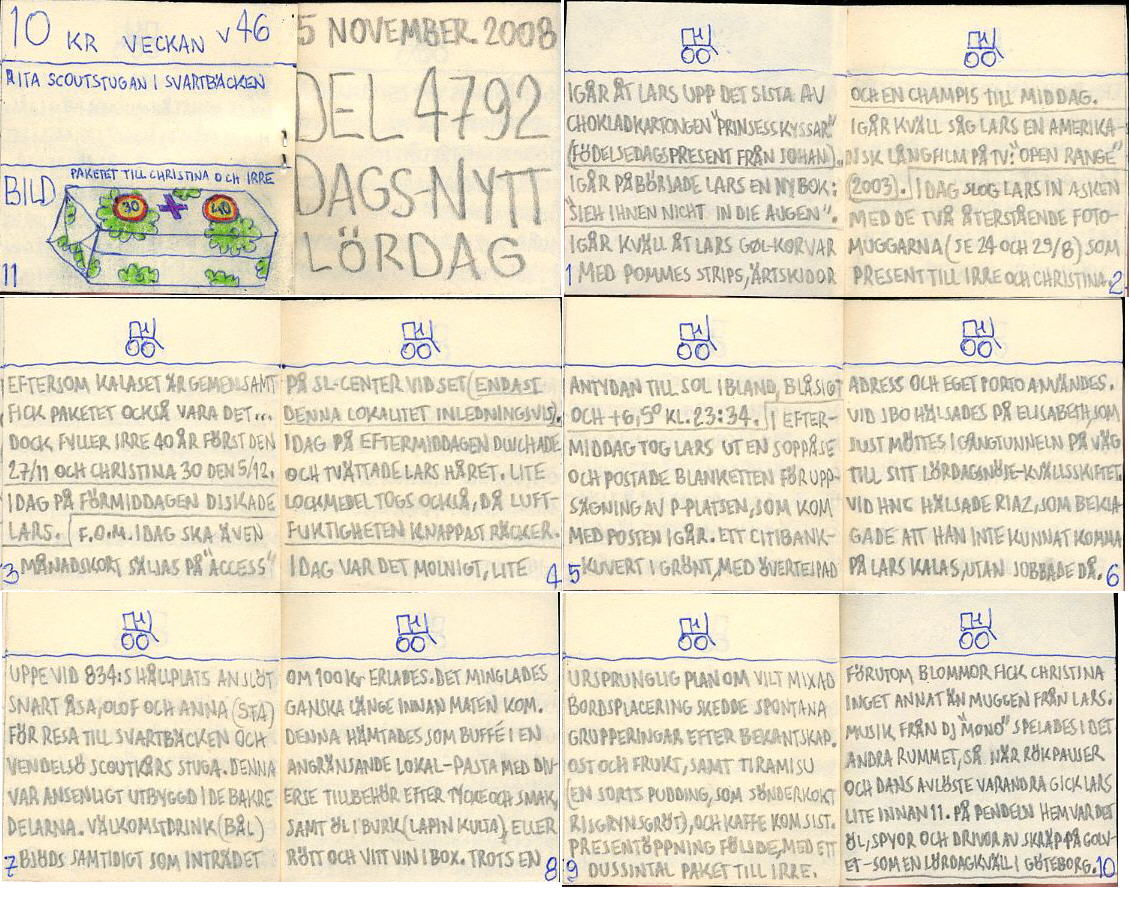 10 KR VECKAN V46
RITA SCOUTSTUGAN I SVARTBÄCKEN
BILD
PAKETET TILL CHRISTINA OCH IRRE
30 + 40
11
5 NOVEMBER 2008
DEL 4792
DAGS-NYTT
LÖRDAG
IGÅR ÅT LARS UPP DET SISTA AV
CHOKLADKARTONGEN "PRINSESSKYSSAR"
(FÖDELSEDAGSPRESENT FRÅN JOHAN).
IGÅR PÅBÖRJADE LARS EN NY BOK:
"SIEH IHNEN NICHT IN DIE AUGEN".
IGÅR KVÄLL ÅT LARS GØL-KORVAR
1 MED POMMES STRIPS, ÄRTSKIDOR
OCH EN CHAMPIS TILL MIDDAG.
IGÅR KVÄLL SÅG LARS EN AMERIKA-
NSK LÅNGFILM PÅ TV: "OPEN RANGE"
(2003). IDAG SLOG LARS IN ASKEN
MED DE TVÅ ÅTERSTÅENDE FOTO-
MUGGARNA (SE 24 OCH 29/8) SOM
PRESENT TILL IRRE OCH CHRISTINA. 2
EFTERSOM KALASET ÄR GEMENSAMT
FICK PAKETET OCKSÅ VARA DET...
DOCK FYLLER IRRE 40 ÅR FÖRST DEN
27/11 OCH CHRISTINA 30 DEN 5/12.
IDAG PÅ FÖRMIDDAGEN DISKADE
LARS. F.O.M. IDAG SKA ÄVEN
3 MÅNADSKORT SÄLJAS PÅ "ACCESS"
PÅ SL-CENTER VID SET (ENDAST
DENNA LOKALITET INLEDNINGSVIS).
IDAG PÅ EFTERMIDDAGEN DUSCHADE
OCH TVÄTTADE LARS HÅRET. LITE
LOCKMEDEL TOGS OCKSÅ, DÅ LUFT-
FUKTIGHETEN KNAPPAST RÄCKER.
IDAG VAR DET MOLNIGT, LITE 4
ANTYDAN TILL SOL IBLAND, BLÅSIGT
OCH +6,5° KL. 23:34. I EFTER-
MIDDAG TOG LARS UT EN SOPPÅSE
OCH POSTADE BLANKETTEN FÖR UPP-
SÄGNING AV P-PLATSEN, SOM KOM
MED POSTEN IGÅR. ETT CITIBANK-
5 KUVERT I GRÖNT, MED ÖVERTEJPAD
ADRESS OCH EGET PORTO ANVÄNDES.
VID JBO HÄLSADES PÅ ELISABETH, SOM
JUST MÖTTES I GÅNGTUNNELN PÅ VÄG
TILL SITT LÖRDAGNÖJE-KVÄLLSSKIFTET.
VID HNC HÄLSADE RIAZ, SOM BEKLA-
GADE ATT HAN INTE KUNNAT KOMMA
PÅ LARS KALAS, UTAN JOBBADE DÅ. 6
UPPE VID 834:S HÅLLPLATS ANSLÖT
SNART ÅSA, OLOF OCH ANNA (STA)
FÖR RESA TILL SVARTBÄCKEN OCH
VENDELSÖ SCOUTKÅRS STUGA. DENNA
VAR ANSENLIGT UTBYGGD I DE BAKRE
DELARNA. VÄLKOMSTDRINK (BÅL)
7 BJÖDS SAMTIDIGT SOM INTRÄDET
OM 100 KR ERLADES. DET MINGLADES
GANSKA LÄNGE INNAN MATEN KOM.
DENNA HÄMTADES SOM BUFFÉ I EN
ANGRÄNSANDE LOKAL - PASTA MED DIV-
ERSE TILLBEHÖR EFTER TYCKE OCH SMAK,
SAMT ÖL I BURK (LAPIN KULTA), ELLER
RÖTT OCH VITT VIN I BOX. TROTS EN 8
URSPRUNGLIG PLAN OM VILT MIXAD
BORDSPLACERING SKEDDE SPONTANA
GRUPPERINGAR EFTER BEKANTSKAP.
OST OCH FRUKT, SAMT TIRAMISU
(EN SORTS PUDDING, SOM SÖNDERKOKT
RISGRYNSGRÖT), OCH KAFFE KOM SIST.
PRESENTÖPPNING FÖLJDE, MED ETT
9 DUSSINTAL PAKET TILL IRRE.
FÖRUTOM BLOMMOR FICK CHRISTINA
INGET ANNAT ÄN MUGGEN FRÅN LARS.
MUSIK FRÅN DJ "MONO" SPELADES I DET
ANDRA RUMMET, SÅ NÄR RÖKPAUSER
OCH DANS AVLÖSTE VARANDRA GICK LARS
LITE INNAN 11. PÅ PENDELN HEM VAR DET
ÖL, SPYOR OCH DRIVOR AV SKRÄP PÅ GOLV-
ET - SOM EN LÖRDAGKVÄLL I GÖTEBORG. 10